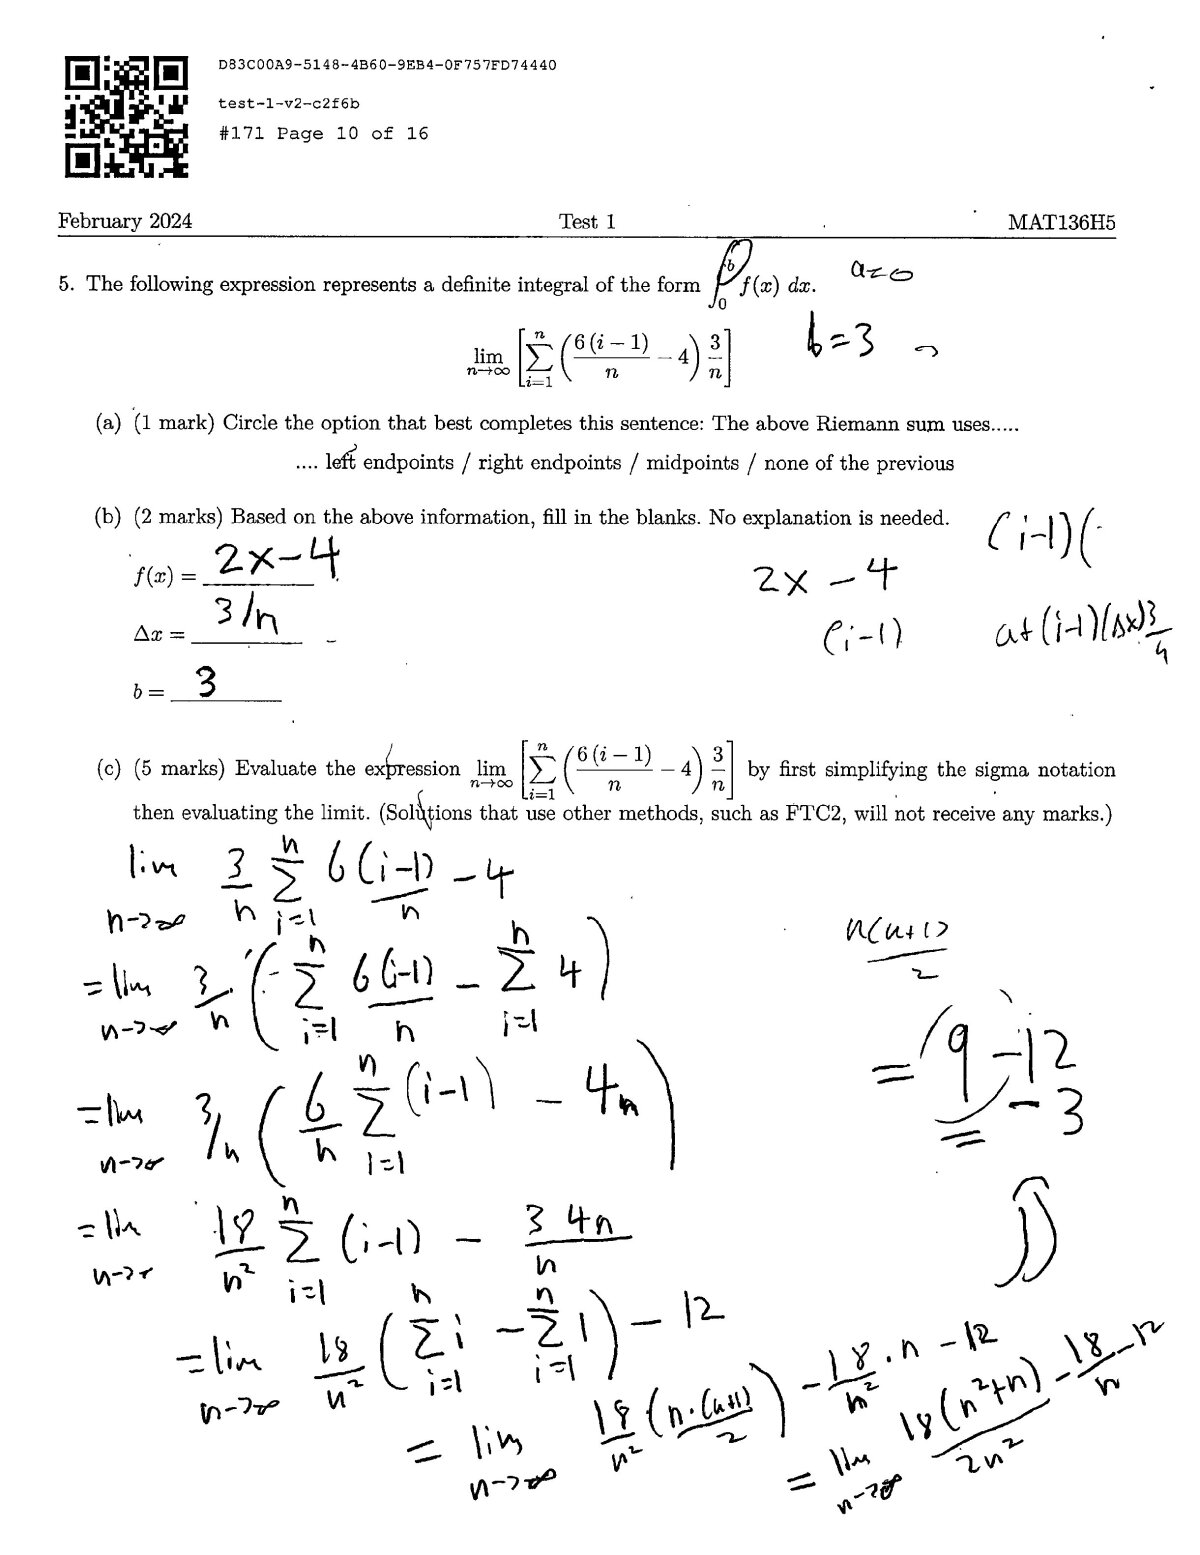 D83C00A9-5148-4B60-9EB4-0F757FD74440
test-1-v2-c2f6b
#171 Page 10 of 16
February 2024 Test 1 MAT136H5
5. The following expression represents a definite integral of the form ∫_0^b f(x) dx. a=0
lim_{n→∞} [ Σ_{i=1}^{n} ( 6(i − 1)/n − 4 ) 3/n ] b=3
(a) (1 mark) Circle the option that best completes this sentence: The above Riemann sum uses.....
.... left endpoints / right endpoints / midpoints / none of the previous
(b) (2 marks) Based on the above information, fill in the blanks. No explanation is needed. (i-1)(
f(x) = 2x-4 2x - 4
Δx = 3/n (i-1) a+(i-1)(Δx) 3/n
b = 3
(c) (5 marks) Evaluate the expression lim_{n→∞} [ Σ_{i=1}^{n} ( 6(i − 1)/n − 4 ) 3/n ] by first simplifying the sigma notation
then evaluating the limit. (Solutions that use other methods, such as FTC2, will not receive any marks.)
lim_{n→∞} 3/n Σ_{i=1}^{n} 6(i-1)/n - 4
= lim_{n→∞} 3/n ( Σ_{i=1}^{n} 6(i-1)/n - Σ_{i=1}^{n} 4 ) n(n+1)/2
= lim_{n→∞} 3/n ( 6/n Σ_{i=1}^{n} (i-1) - 4n ) = 9-12
= -3
= lim_{n→∞} 18/n² Σ_{i=1}^{n} (i-1) - 3 4n/n
= lim_{n→∞} 18/n² ( Σ_{i=1}^{n} i - Σ_{i=1}^{n} 1 ) - 12
= lim_{n→∞} 18/n² ( n·(n+1)/2 ) - 18/n² · n - 12
= lim_{n→∞} 18(n²+n)/2n² - 18/n - 12